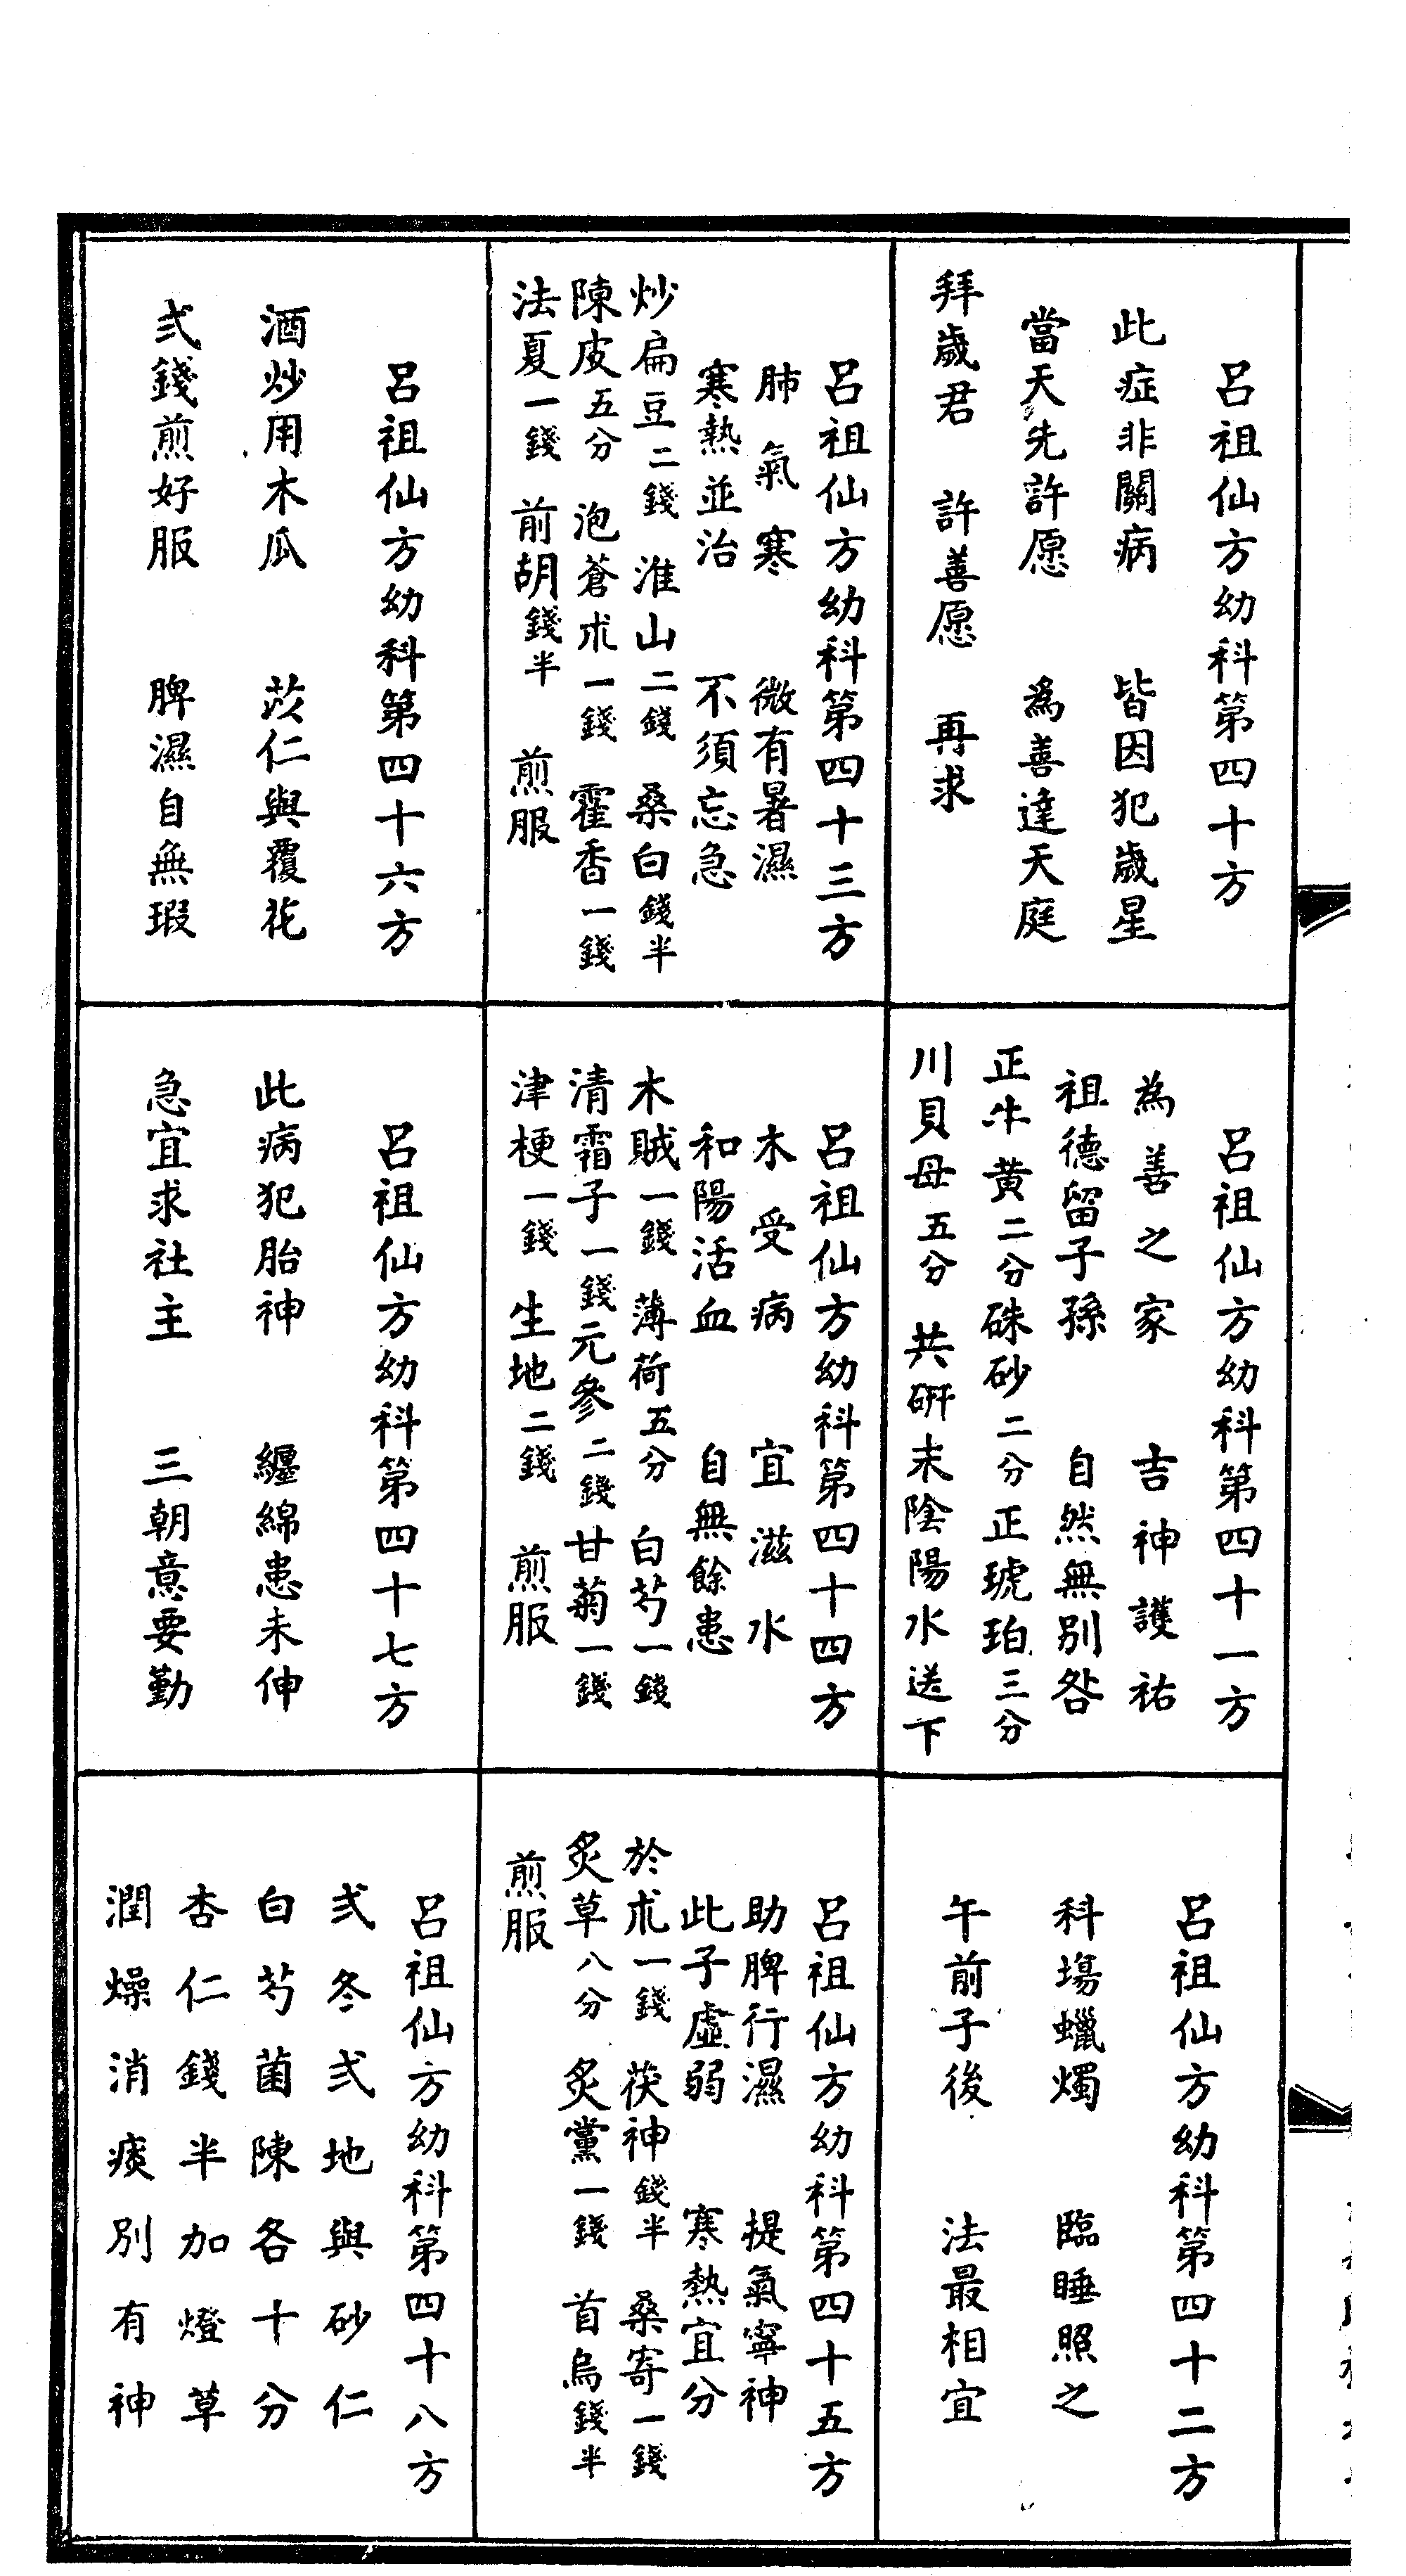 呂祖仙方幼科第四十方
此症非關病　皆因犯歲星
當天先許愿　為善達天庭
拜歲君　許善愿　再求
呂祖仙方幼科第四十一方
為善之家　吉神護祐
祖德留子孫　自然無別咎
正牛黄二分硃砂二分正琥珀三分
川貝母五分　共研末陰陽水送下
呂祖仙方幼科第四十二方
科塲蠟燭　臨睡照之
午前子後　法最相宜
呂祖仙方幼科第四十三方
肺氣寒　微有暑濕
寒熱並治　不須忘急
炒扁豆二錢　淮山二錢　桑白錢半
陳皮五分　泡蒼朮一錢　霍香一錢
法夏一錢　前胡錢半　煎服
呂祖仙方幼科第四十四方
木受病　宜滋水
和陽活血　自無餘患
木賊一錢　薄荷五分　白芍一錢
清霜子一錢元參二錢甘菊一錢
津梗一錢　生地二錢　煎服
呂祖仙方幼科第四十五方
助脾行濕　提氣寧神
此子虛弱　寒熱宜分
於朮一錢　茯神錢半　桑寄一錢
炙草八分　炙黨一錢　首烏錢半
煎服
呂祖仙方幼科第四十六方
酒炒用木瓜　苡仁與覆花
弍錢煎好服　脾濕自無瑕
呂祖仙方幼科第四十七方
此病犯胎神　纏綿患未伸
急宜求社主　三朝意要勤
呂祖仙方幼科第四十八方
弍冬弍地與砂仁
白芍菌陳各十分
杏仁錢半加燈草
潤燥消痰別有神